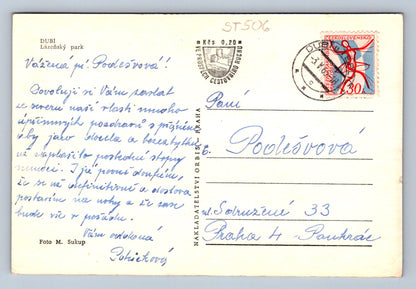 DUBÍ
Lázeňský park
ST506
Kčs 0,20
VE PROSPĚCH
CESTOVNÍHO RUCHU
DUBÍ
ČESKOSLOVENSKO
30
Vážená pí Podešvová!
Dovoluji si Vám zaslat
ze severu naší vlasti mnoho
upřímných pozdravů s přáním
aby jaro docela a beze zbytku
zaplašilo poslední stopy
nemoci. I já pevně doufám,
že se už definitivně a doslova
postavím na nohy a že zase
bude vše v pořádku.
Vám oddaná
Foto M. Sukup
NAKLADATELSTVÍ ORBIS - PRAHA
Paní
Podešvová
ul. Sdružení 33
Praha 4 - Pankrác